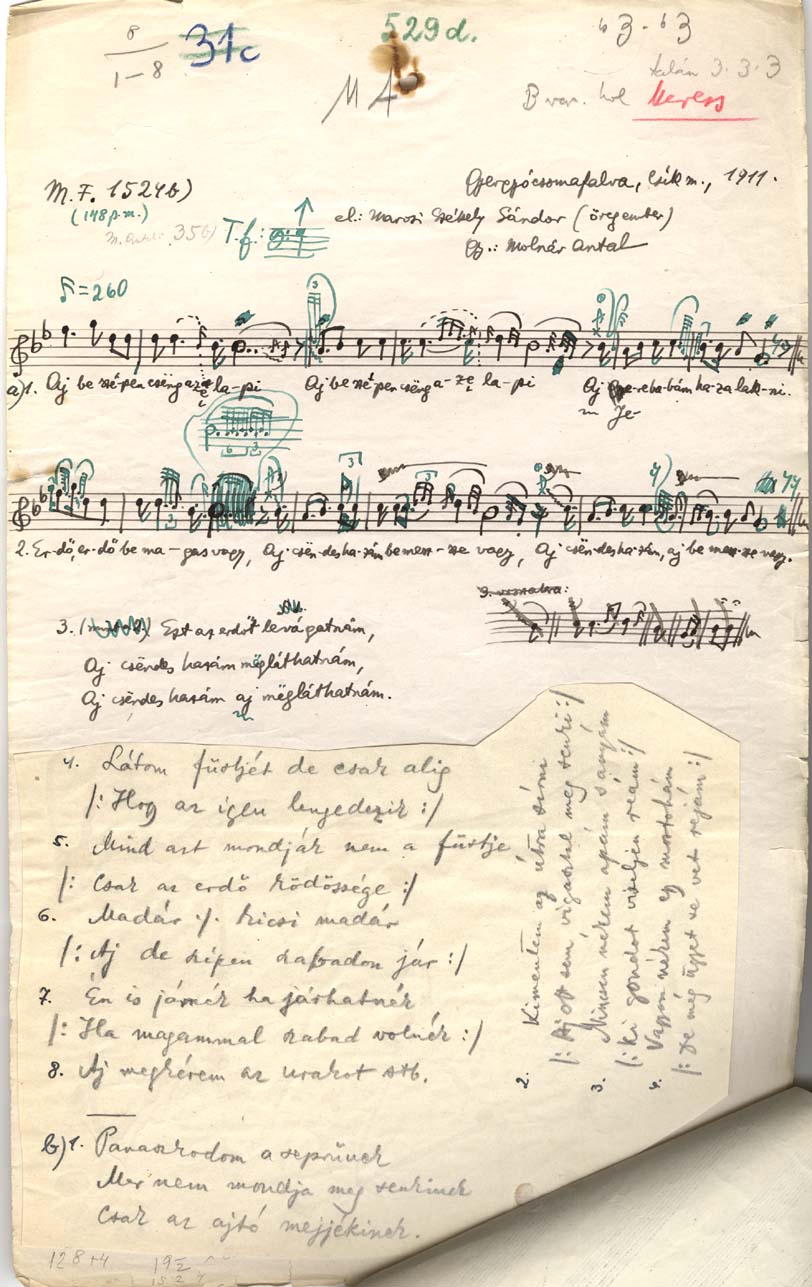 8
1-8
31c
529d.
63.63
talán 3.3.3
MA
B var. hol Keress
M.F. 1524b)
Gyergyócsomafalva, Csík m., 1911.
(148 p.m.)
356)
T.f.:
el.: Marosi Székely Sándor (öregember)
Gy.: Molnár Antal
=260
3
a) 1. Aj be szépen cseng a ze la-pi
Aj be szépen cseng a-ze la-pi
Aj ha-za lak-ni.
Je-
6 3
3
2. Er-dő, er-dő be ma-gas vagy, Aj csën-des ha-zám be mesz-sze vagy, Aj csën-des ha-zám, aj be mesz-sze vagy.
3. Ezt az erdőt levágatnám,
Aj csëndes hazám mëgláthatnám,
Aj csëndes hazám aj mëgláthatnám.
4. Látom füstjét de csak alig
/: Hogy az égen lengedezik :/
5. Mind azt mondják nem a füstje
/: Csak az erdő ködössége :/
6. Madár ./. kicsi madár
/: Aj de szépen szabadon jár :/
7. Én is járnék ha járhatnék
/: Ha magammal szabad volnék :/
8. Aj megkérem az urakot stb.
2. Kimentem az útra sírni
/: Aj ott sem vigasztal meg senki :/
3. Nincsen nékem apám s anyám
/: Ki gondot viseljen reám :/
4. Vagyon nékem egy mostohám
/: De még ügyet se vet rejám :/
b) 1. Panaszkodom a seprűnek
Mer nem mondja meg senkinek
Csak az ajtó megjékinek.
128+4